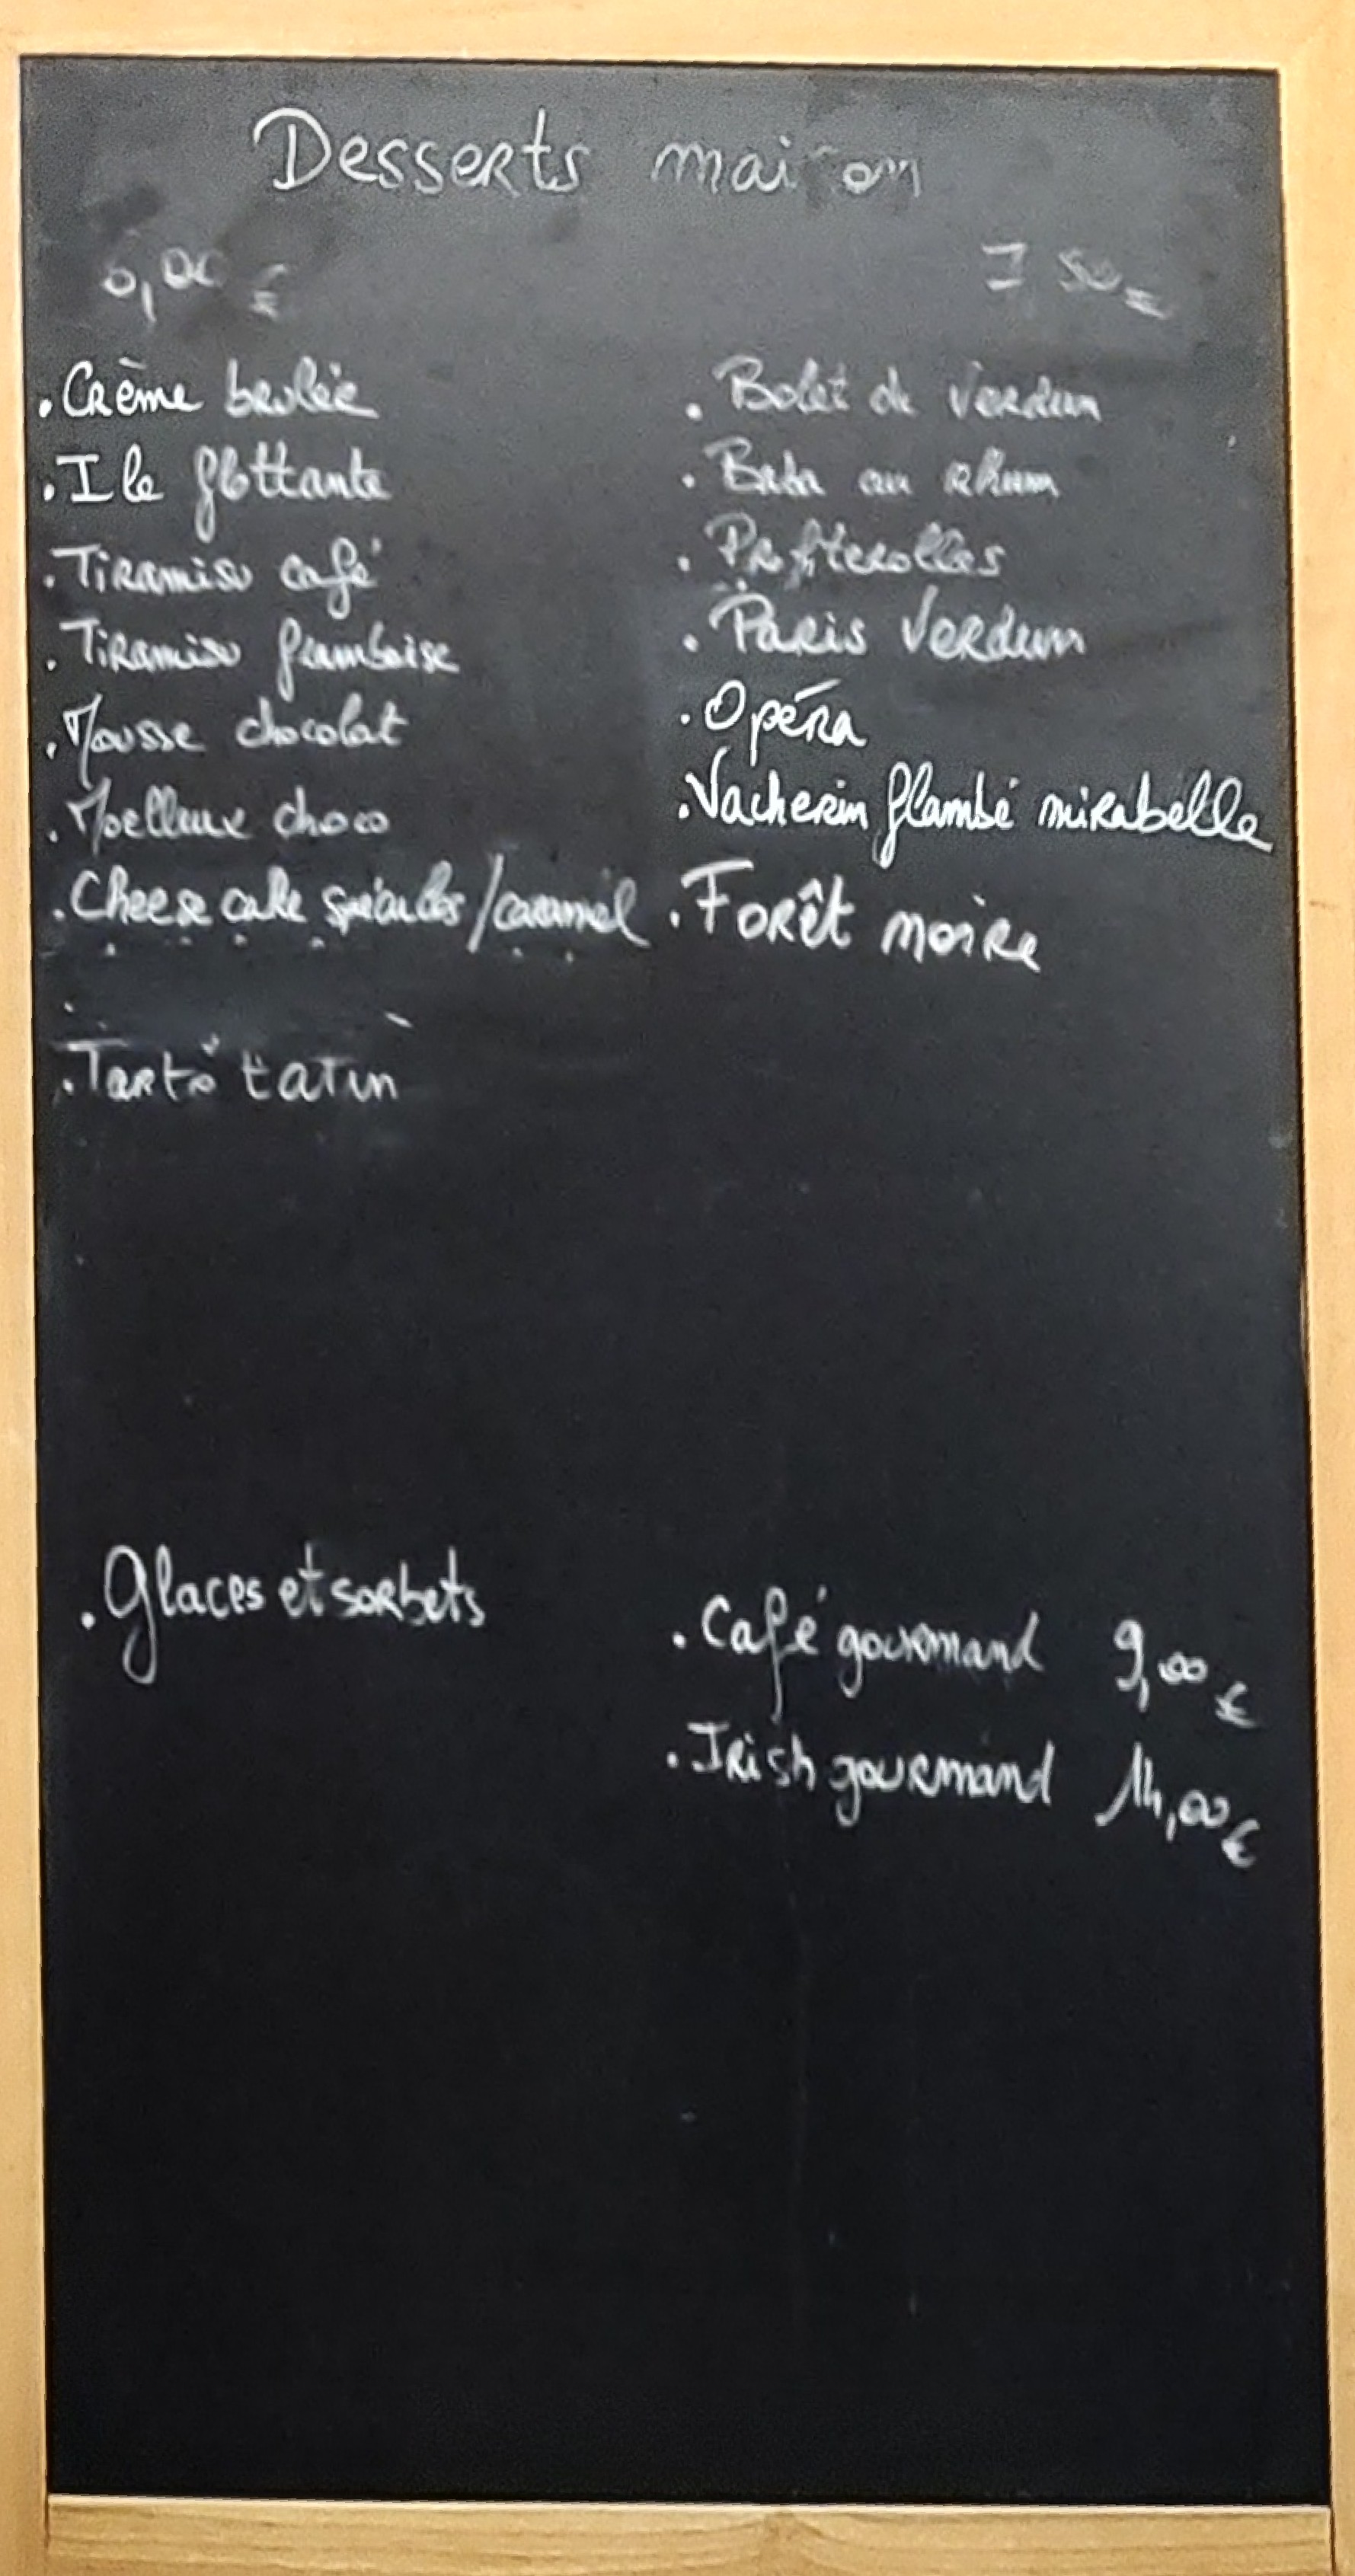 Desserts maison
6,00 €
. Crème brulée
. Ile flottante
. Tiramisu café
. Tiramisu framboise
. Mousse chocolat
. Moelleux choco
. Cheese cake spéculos/caramel
. Tarte tatin
7 50 €
. Bolet de Verdun
. Baba au rhum
. Profiterolles
. Paris Verdun
. Opéra
. Vacherin flambé mirabelle
. Forêt noire
. Glaces et sorbets
. Café gourmand 9,00 €
. Irish gourmand 14,00 €